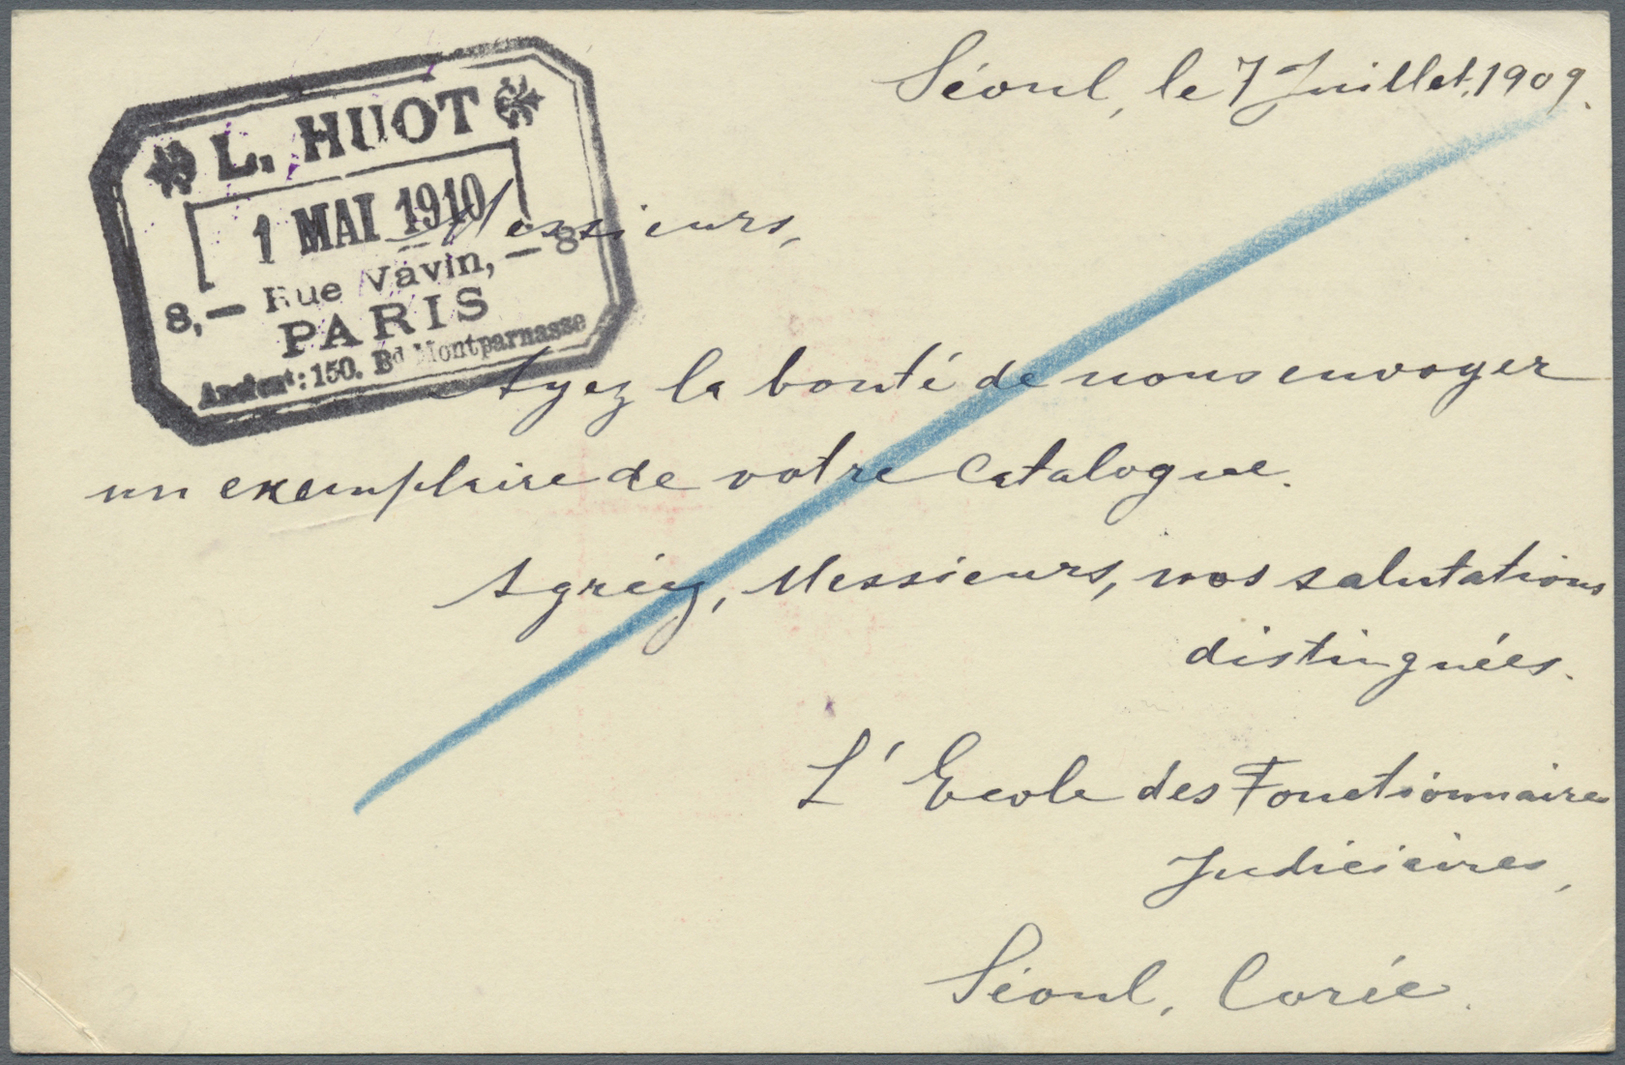 Séoul, le 7 Juillet, 1909.
L. HUOT
1 MAI 1910
8,— Rue Vavin, — 8
PARIS
Ancient: 150. Bd Montparnasse
Messieurs,
Ayez la bonté de nous envoyer
un exemplaire de votre Catalogue.
Agréez, Messieurs, nos salutations
distinguées.
L' Ecole des Fonctionnaires
Judiciaires,
Séoul, Corée.